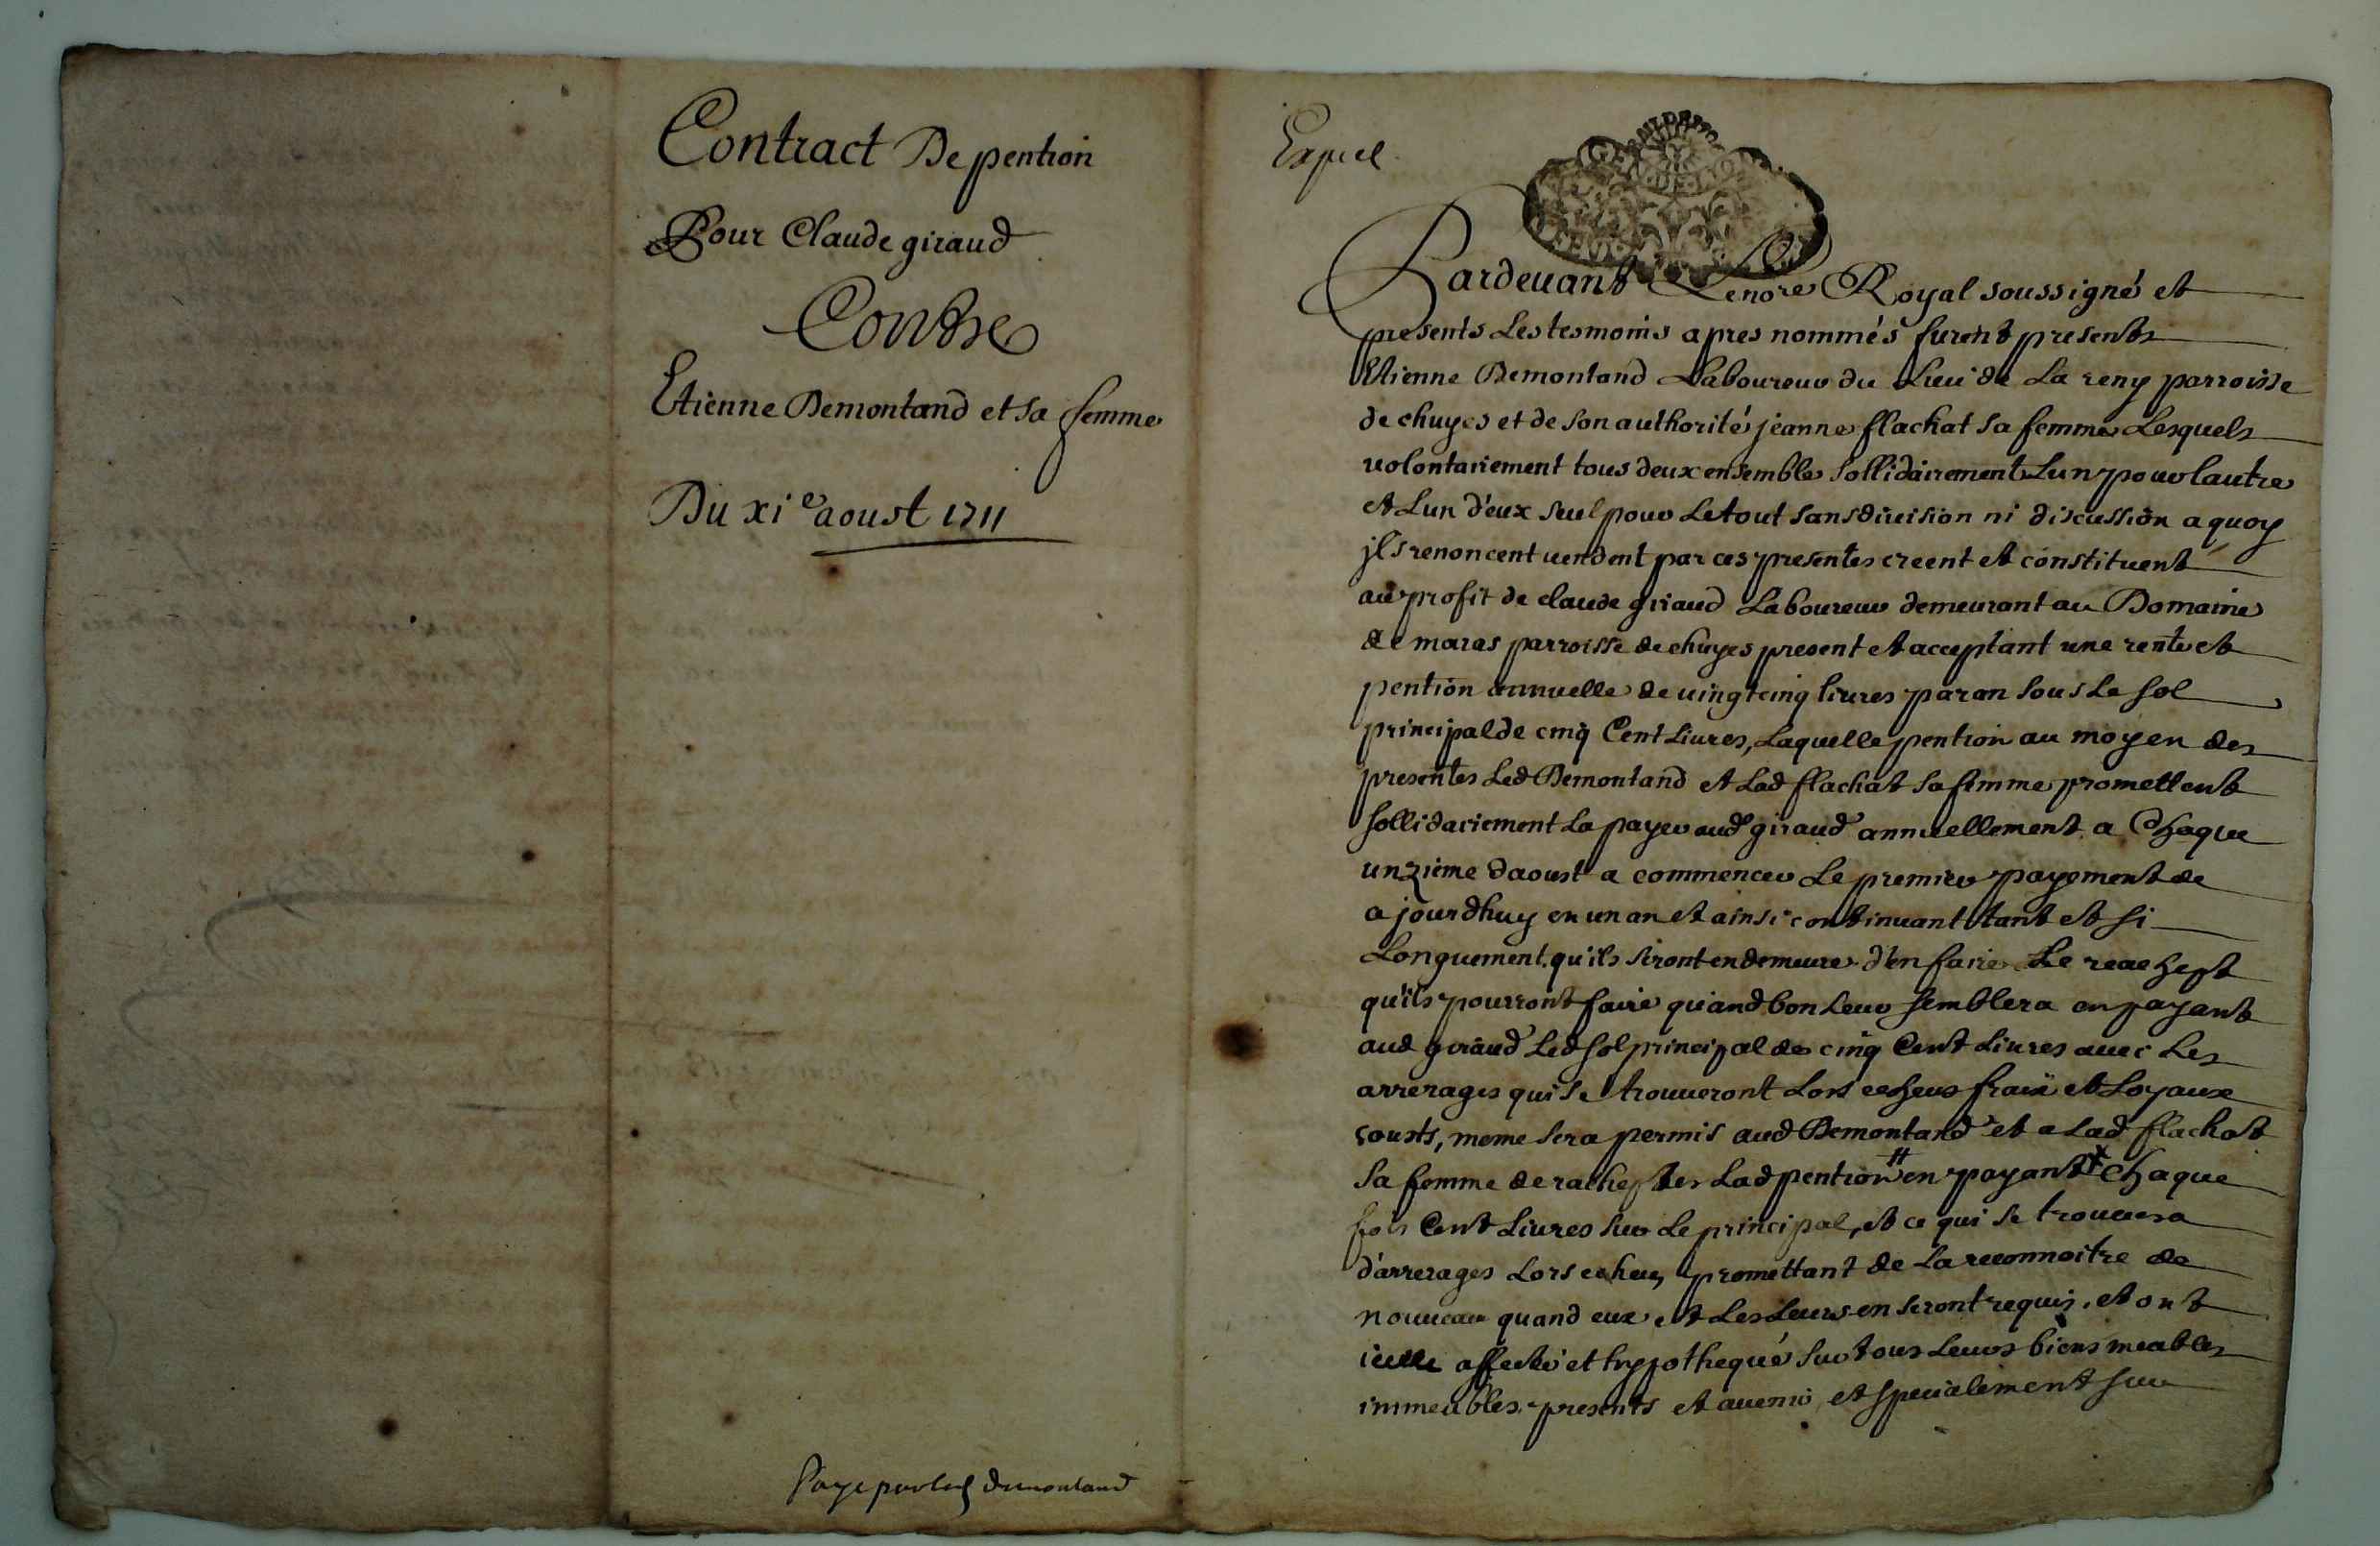 Contract De pention
Pour Claude giraud
Contre
Etienne Demontand et sa femme
Du xie aoust 1711
Paye par led demontand
Expéé
Pardeuant Le nore Royal soussigné et
presents Les tesmoins apres nommés furent presents
Etienne Demontand Laboureur du Lieu de La reny parroisse
de chuyes et de son authorité jeanne flachat sa femme Lesquels
volontairement tous deux ensemble sollidairement Lun pour lautre
et Lun d'eux seul pour Le tout sans diuision ni discussion a quoy
jls renoncent uendent par ces presentes creent et constituent
au profit de claude giraud Laboureur demeurant au Domaine
de maras parroisse de chuyes present et acceptant une rente et
pention annuelle de uingtcinq liures par an sous Le sol
principal de cinq Cent Liures, Laquelle pention au moyen des
presentes Led Demontand et Lad flachat sa femme promettent
sollidairement La payer aud giraud annuellement a Chaque
unzieme daoust a commencer Le premier payement de
a jourdhuy en un an et ainsi continuant tant et si
Longuement qu'ils seront en demeure d'en faire Le reachept
qu'ils pourront faire quand bon Leur semblera en payant
aud giraud Led sol principal de cinq Cent Liures auec Les
arrerages qui se trouueront Lors escheus fraix et Loyaux
cousts, meme sera permis aud Demontand et a Lad flachat
sa femme de rachepter Lad pention # en payant + Chaque
fois Cent Liures sur Le principal, et ce qui se trouuera
d'arrerages Lors echeus, promettant de La reconnoitre de
nouueau quand eux et Les Leurs en seront requis, et ont
icelle affecté et hypothequé sur tous Leurs biens meubles
immeubles presents et auenir et specialement sur